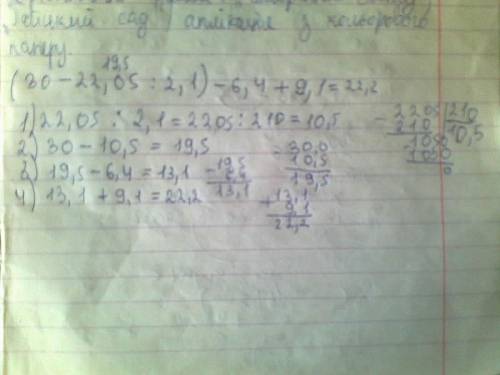 дитячий сад аплікація з кольорового
паперу.
19,5
(30 - 22,05 : 2,1) - 6,4 + 9,1 = 22,2
1) 22,05 : 2,1 = 2205 : 210 = 10,5
2) 30 - 10,5 = 19,5
3) 19,5 - 6,4 = 13,1
4) 13,1 + 9,1 = 22,2
- 19,5
6,4
13,1
- 30,0
10,5
19,5
+ 13,1
9,1
22,2
- 2205 | 210
210 | 10,5
- 1050
1050
0